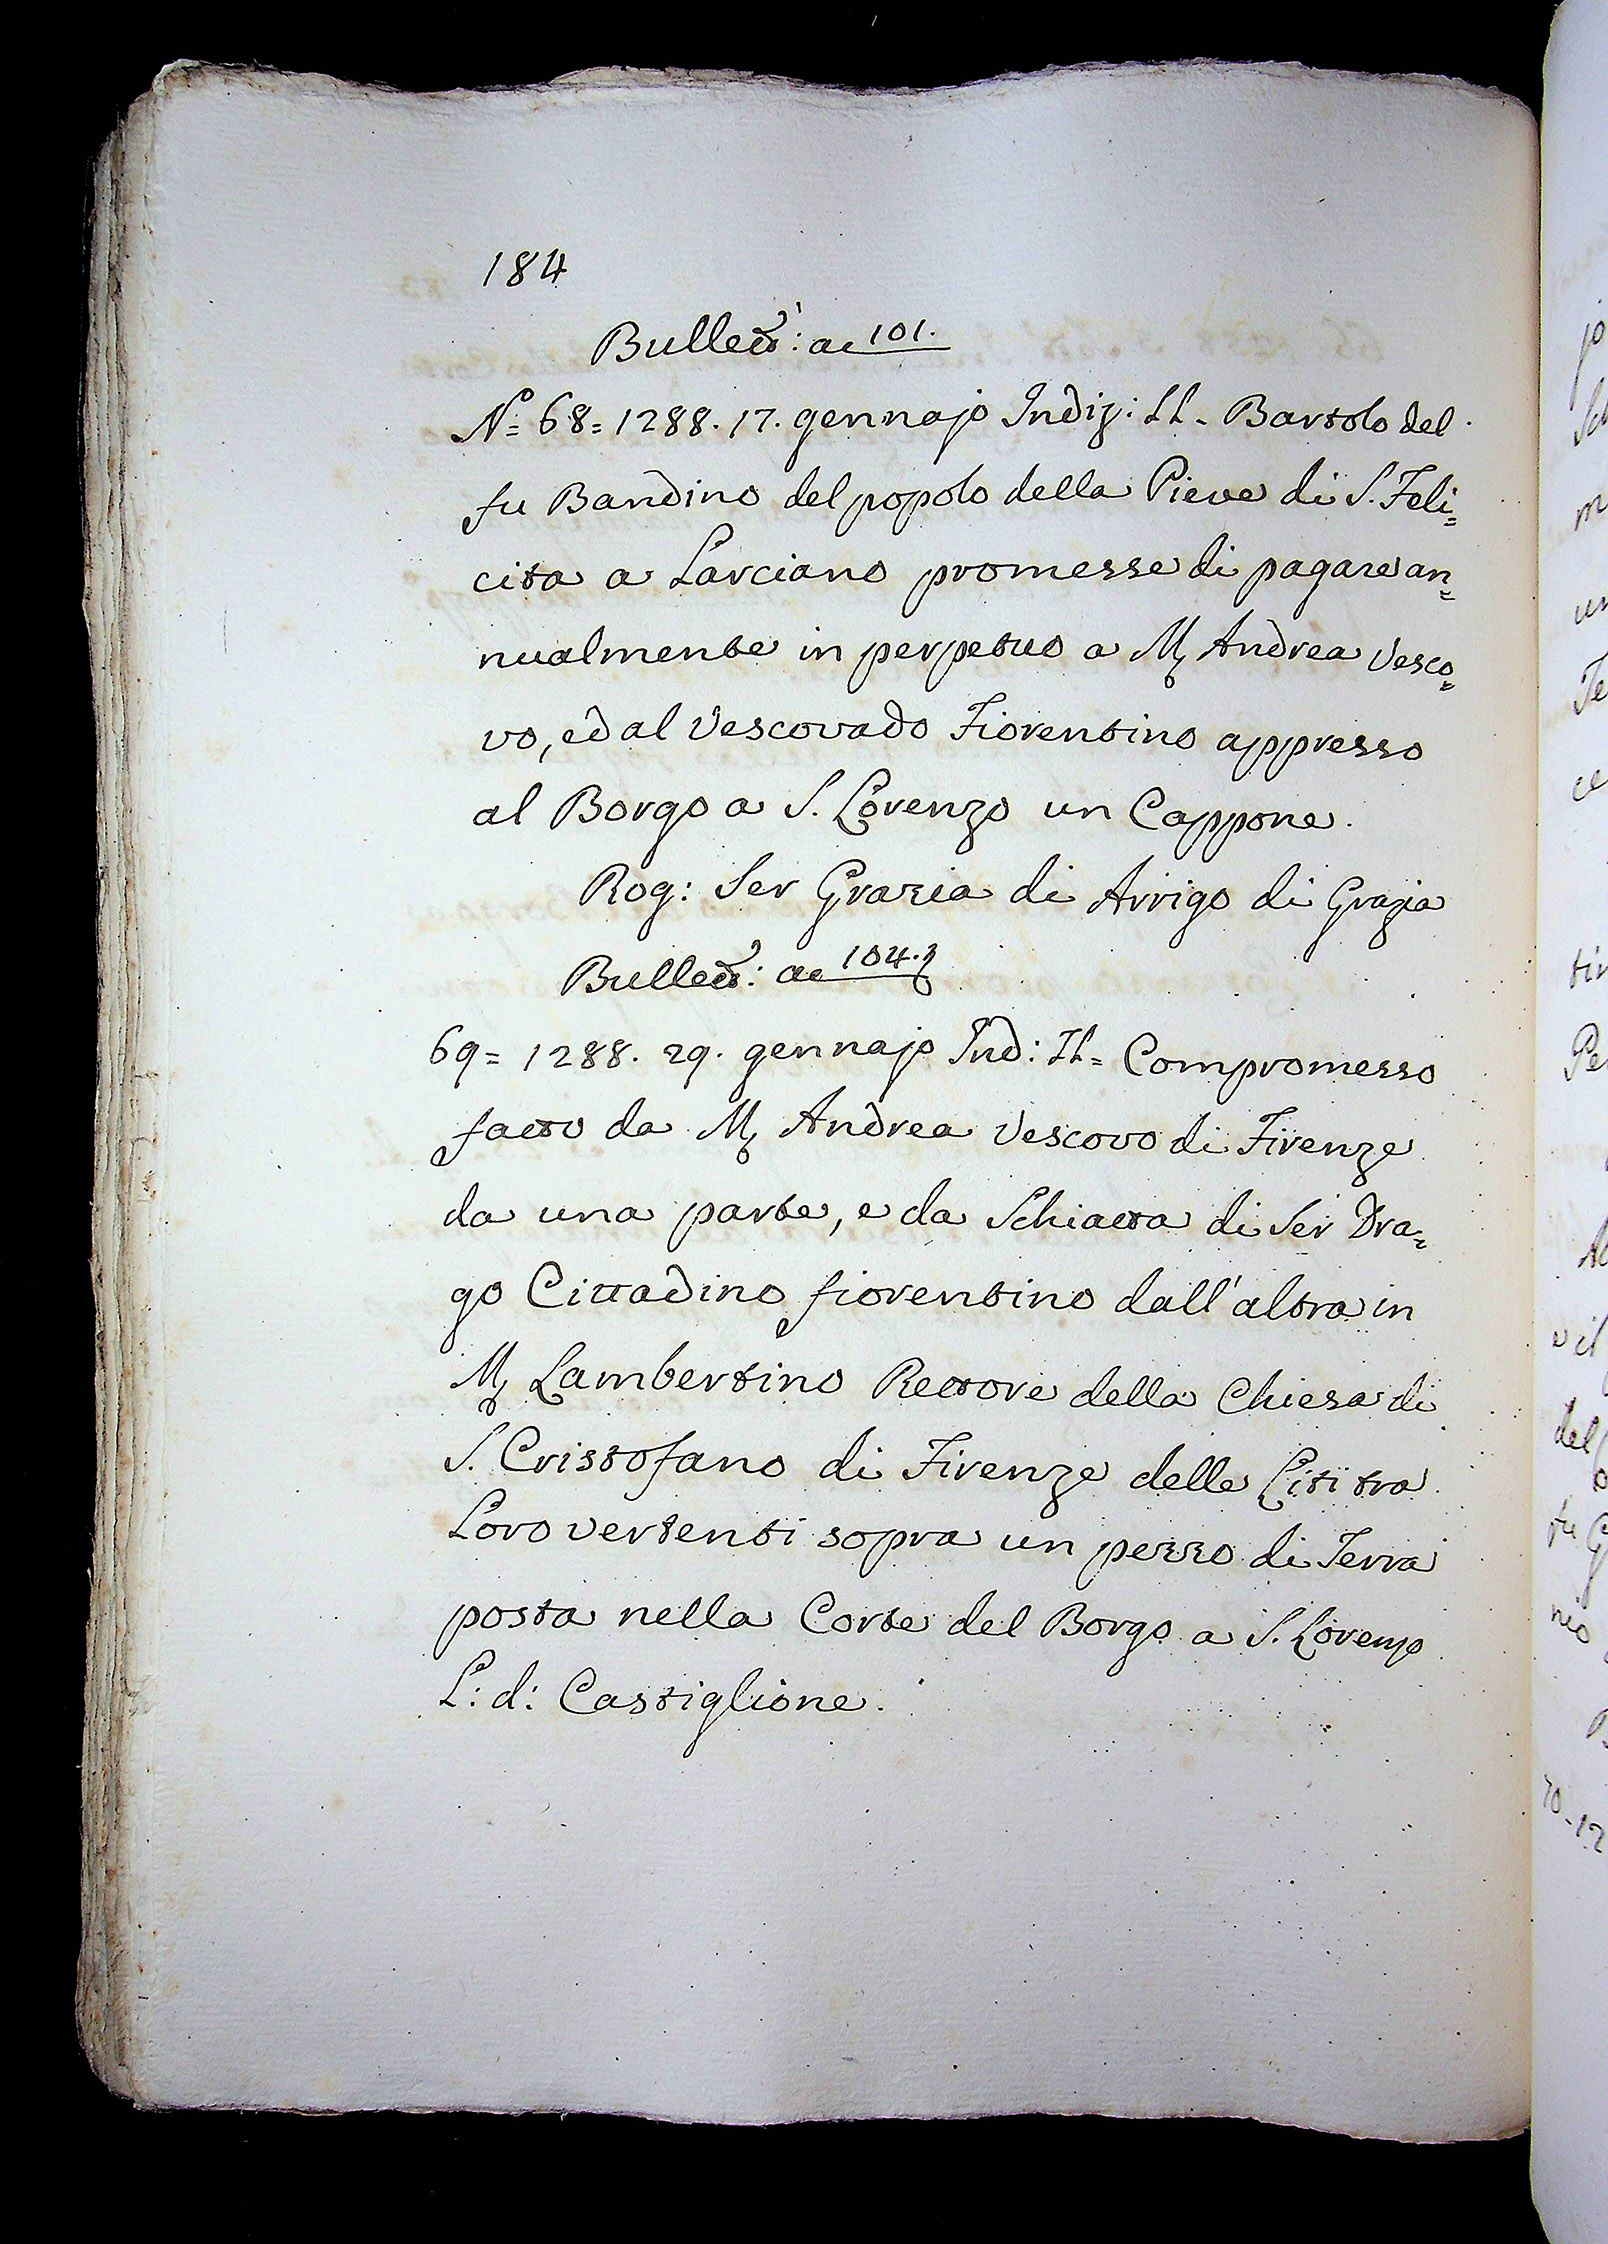 184
Bullett: ac 101.
Nº= 68= 1288. 17. gennajo Indiz: II. Bartolo del
fu Bandino del popolo della Pieve di S. Feli=
cita a Larciano promesse di pagare an=
nualmente in perpetuo a M. Andrea Vesco=
vo, ed al Vescovado Fiorentino appresso
al Borgo a S. Lorenzo un Cappone.
Rog: Ser Grazia di Arrigo di Grazia
Bullett: ac 104.
69= 1288. 29. gennajo Ind: II= Compromesso
fatto da M. Andrea Vescovo di Firenze
da una parte, e da Schiatta di Ser Dra=
go Cittadino fiorentino dall'altra in
M. Lambertino Rettore della Chiesa di
S. Cristofano di Firenze delle Liti tra
Loro vertenti sopra un pezzo di Terra
posta nella Corte del Borgo a S. Lorenzo
L: d: Castiglione.